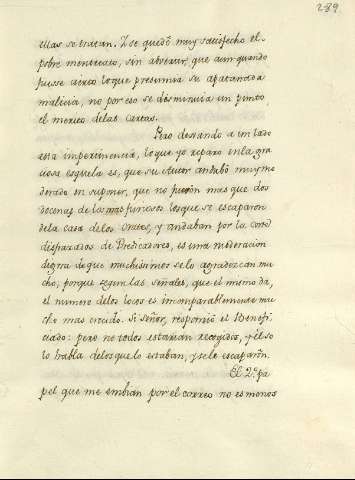 289
ellas se tratan. Y se quedó muy satisfecho el
pobre mentecato, sin advertir, que aun quando
fuesse cierto loque presumia su apatanada
malicia, no por eso se disminuia un punto,
el merito delas Cartas.
Pero dexando a un lado
esta impertinencia, loque yo reparo en la gra
ciosa esquela es, que su Autor andubò muy mo
derado en suponer, que no fueron mas que dos
decenas de los mas furiosos los que se escaparon
dela casa de los Orates, y andaban por los
disfrazados de Predicadores, es una moderacion
digna de que muchissimos se lo agradezcan mu
cho, porque segun las señales, que el mismo da,
el numero delos locos es incomparablemente mu
cho mas crecido. Si Señor, respondiò el Benefi
ciado: pero no todos estarian recogidos, y èl so
lo habla delos que lo estaban, y se le escaparòn.
El 2.º pa
pel que me embian por el correo no es menos